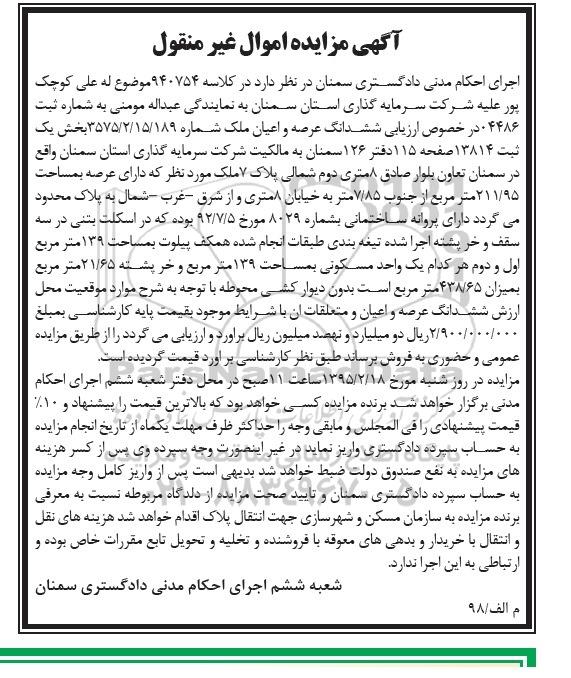 آگهی مزایده اموال غیر منقول
اجرای احکام مدنی دادگستری سمنان در نظر دارد در کلاسه ۹۴۰۷۵۴موضوع له علی کوچک
پور علیه شرکت سرمایه گذاری استان سمنان به نمایندگی عبداله مومنی به شماره ثبت
۰۴۴۸۶در خصوص ارزیابی ششدانگ عرصه و اعیان ملک شماره ۳۵۷۵/۲/۱۵/۱۸۹بخش یک
ثبت ۱۳۸۱۴صفحه ۱۱۵دفتر ۱۲۶سمنان به مالکیت شرکت سرمایه گذاری استان سمنان واقع
در سمنان تعاون بلوار صادق ۸متری دوم شمالی پلاک ۷ملک مورد نظر که دارای عرصه بمساحت
۲۱۱/۹۵متر مربع از جنوب ۷/۸۵متر به خیابان ۸متری و از شرق –غرب –شمال به پلاک محدود
می گردد دارای پروانه ساختمانی بشماره ۸۰۲۹ مورخ ۹۲/۷/۵ بوده که در اسکلت بتنی در سه
سقف و خر پشته اجرا شده تیغه بندی طبقات انجام شده همکف پیلوت بمساحت ۱۳۹متر مربع
اول و دوم هر کدام یک واحد مسکونی بمساحت ۱۳۹متر مربع و خر پشته ۲۱/۶۵متر مربع
بمیزان ۴۳۸/۶۵متر مربع است بدون دیوار کشی محوطه با توجه به شرح موارد موقعیت محل
ارزش ششدانگ عرصه و اعیان و متعلقات ان با شرایط موجود بقیمت پایه کارشناسی بمبلغ
۲/۹۰۰/۰۰۰/۰۰۰ریال دو میلیارد و نهصد میلیون ریال براورد و ارزیابی می گردد را از طریق مزایده
عمومی و حضوری به فروش برساند طبق نظر کارشناسی بر اورد قیمت گردیده است.
مزایده در روز شنبه مورخ ۱۳۹۵/۲/۱۸ساعت ۱۱صبح در محل دفتر شعبه ششم اجرای احکام
مدنی برگزار خواهد شد برنده مزایده کسی خواهد بود که بالاترین قیمت را پیشنهاد و ۱۰٪
قیمت پیشنهادی را فی المجلس و مابقی وجه را حداکثر ظرف مهلت یکماه از تاریخ انجام مزایده
به حساب سپرده دادگستری واریز نماید در غیر اینصورت وجه سپرده وی پس از کسر هزینه
های مزایده به نفع صندوق دولت ضبط خواهد شد بدیهی است پس از واریز کامل وجه مزایده
به حساب سپرده دادگستری سمنان و تایید صحت مزایده از دادگاه مربوطه نسبت به معرفی
برنده مزایده به سازمان مسکن و شهرسازی جهت انتقال پلاک اقدام خواهد شد هزینه های نقل
و انتقال با خریدار و بدهی های معوقه با فروشنده و تخلیه و تحویل تابع مقررات خاص بوده و
ارتباطی به این اجرا ندارد.
شعبه ششم اجرای احکام مدنی دادگستری سمنان
م الف/۹۸
ParsNamadData